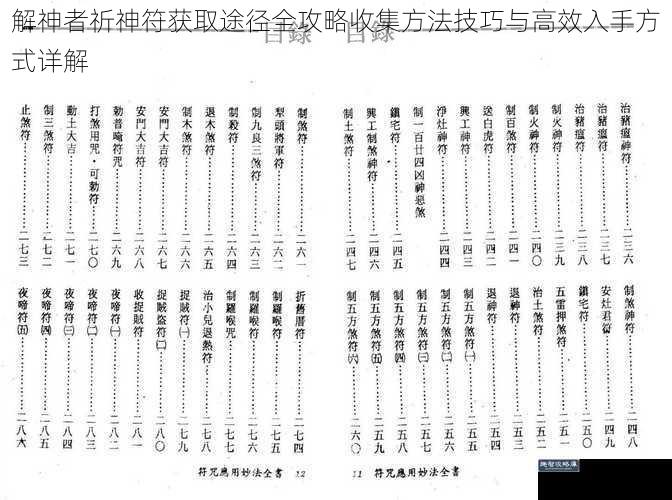 解神者祈神符获取途径全攻略收集方法技巧与高效入手方
式详解
目錄
目錄
治豬瘟神符……二三六
治豬瘟符……二三七
治豬瘟符……二三八
制火神符……二三九
制火神符……二四〇
制百煞符……二四一
送白虎符……二四二
興工神符……二四三
淨灶神符……二四四
制一百廿四凶神惡煞
鎮宅符……二四五
興工制煞神符……二四六
制土煞符……二四七
制煞神符……二四八
安灶君符……二四九
鎮宅符……二五〇
五雷押煞符……二五一
治土煞符……二五二
退神符……二五三
退神符……二五四
制五方煞符㈠……二五五
制五方煞符㈡……二五六
制五方煞符㈢……二五七
制五方煞符㈣……二五八
制五方煞符㈤……二五九
制五方煞符㈥……二六〇
11 符咒應用妙法全書
制煞符……二六一
犁頭將軍符……二六二
制九良三煞符……二六三
制殺符……二六四
退木煞符……二六五
制木煞符……二六六
安門大吉符……二六七
安門大吉符……二六八
勅普喻符咒……二六九
打煞用咒·可勅符……二七〇
動土大吉……二七一
制三煞符……二七二
止煞符……二七三
折舊曆符……二七四
制五鬼符……二七五
制羅喉符……二七六
制羅喉咒……二七七
治小兒退熱符……二七八
捉賊符㈠……二七九
捉賊盜符㈡……二八〇
收捉賊符……二八一
夜啼符㈠……二八二
夜啼符㈡……二八三
夜啼符㈢……二八四
夜啼符㈣……二八五
夜啼符㈤……二八六
符咒應用妙法全書 12